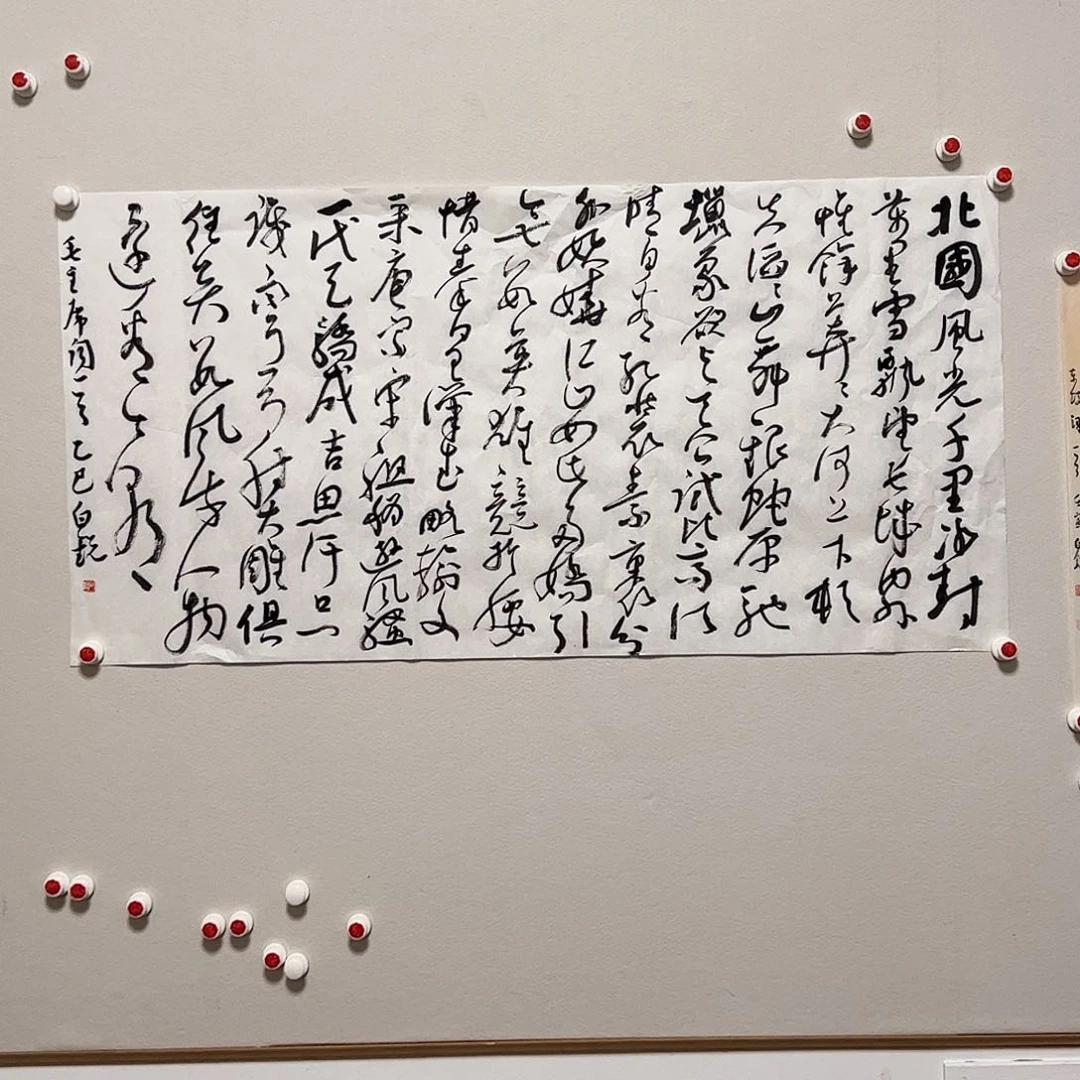 北國風光千里冰封
萬里雪飄望長城內外
惟餘莽々大河上下頓
失滔々山舞銀蛇原馳
蠟象欲與天公試比高須
晴日看紅裝素裹分
外妖嬈江山如此多嬌引
無數英雄競折腰
惜秦皇漢武略輸文
采唐宗宋祖稍遜風騷
一代天驕成吉思汗只
識彎弓射大雕俱
往矣數風流人物
還看今朝
毛主席詞一首 乙巳白